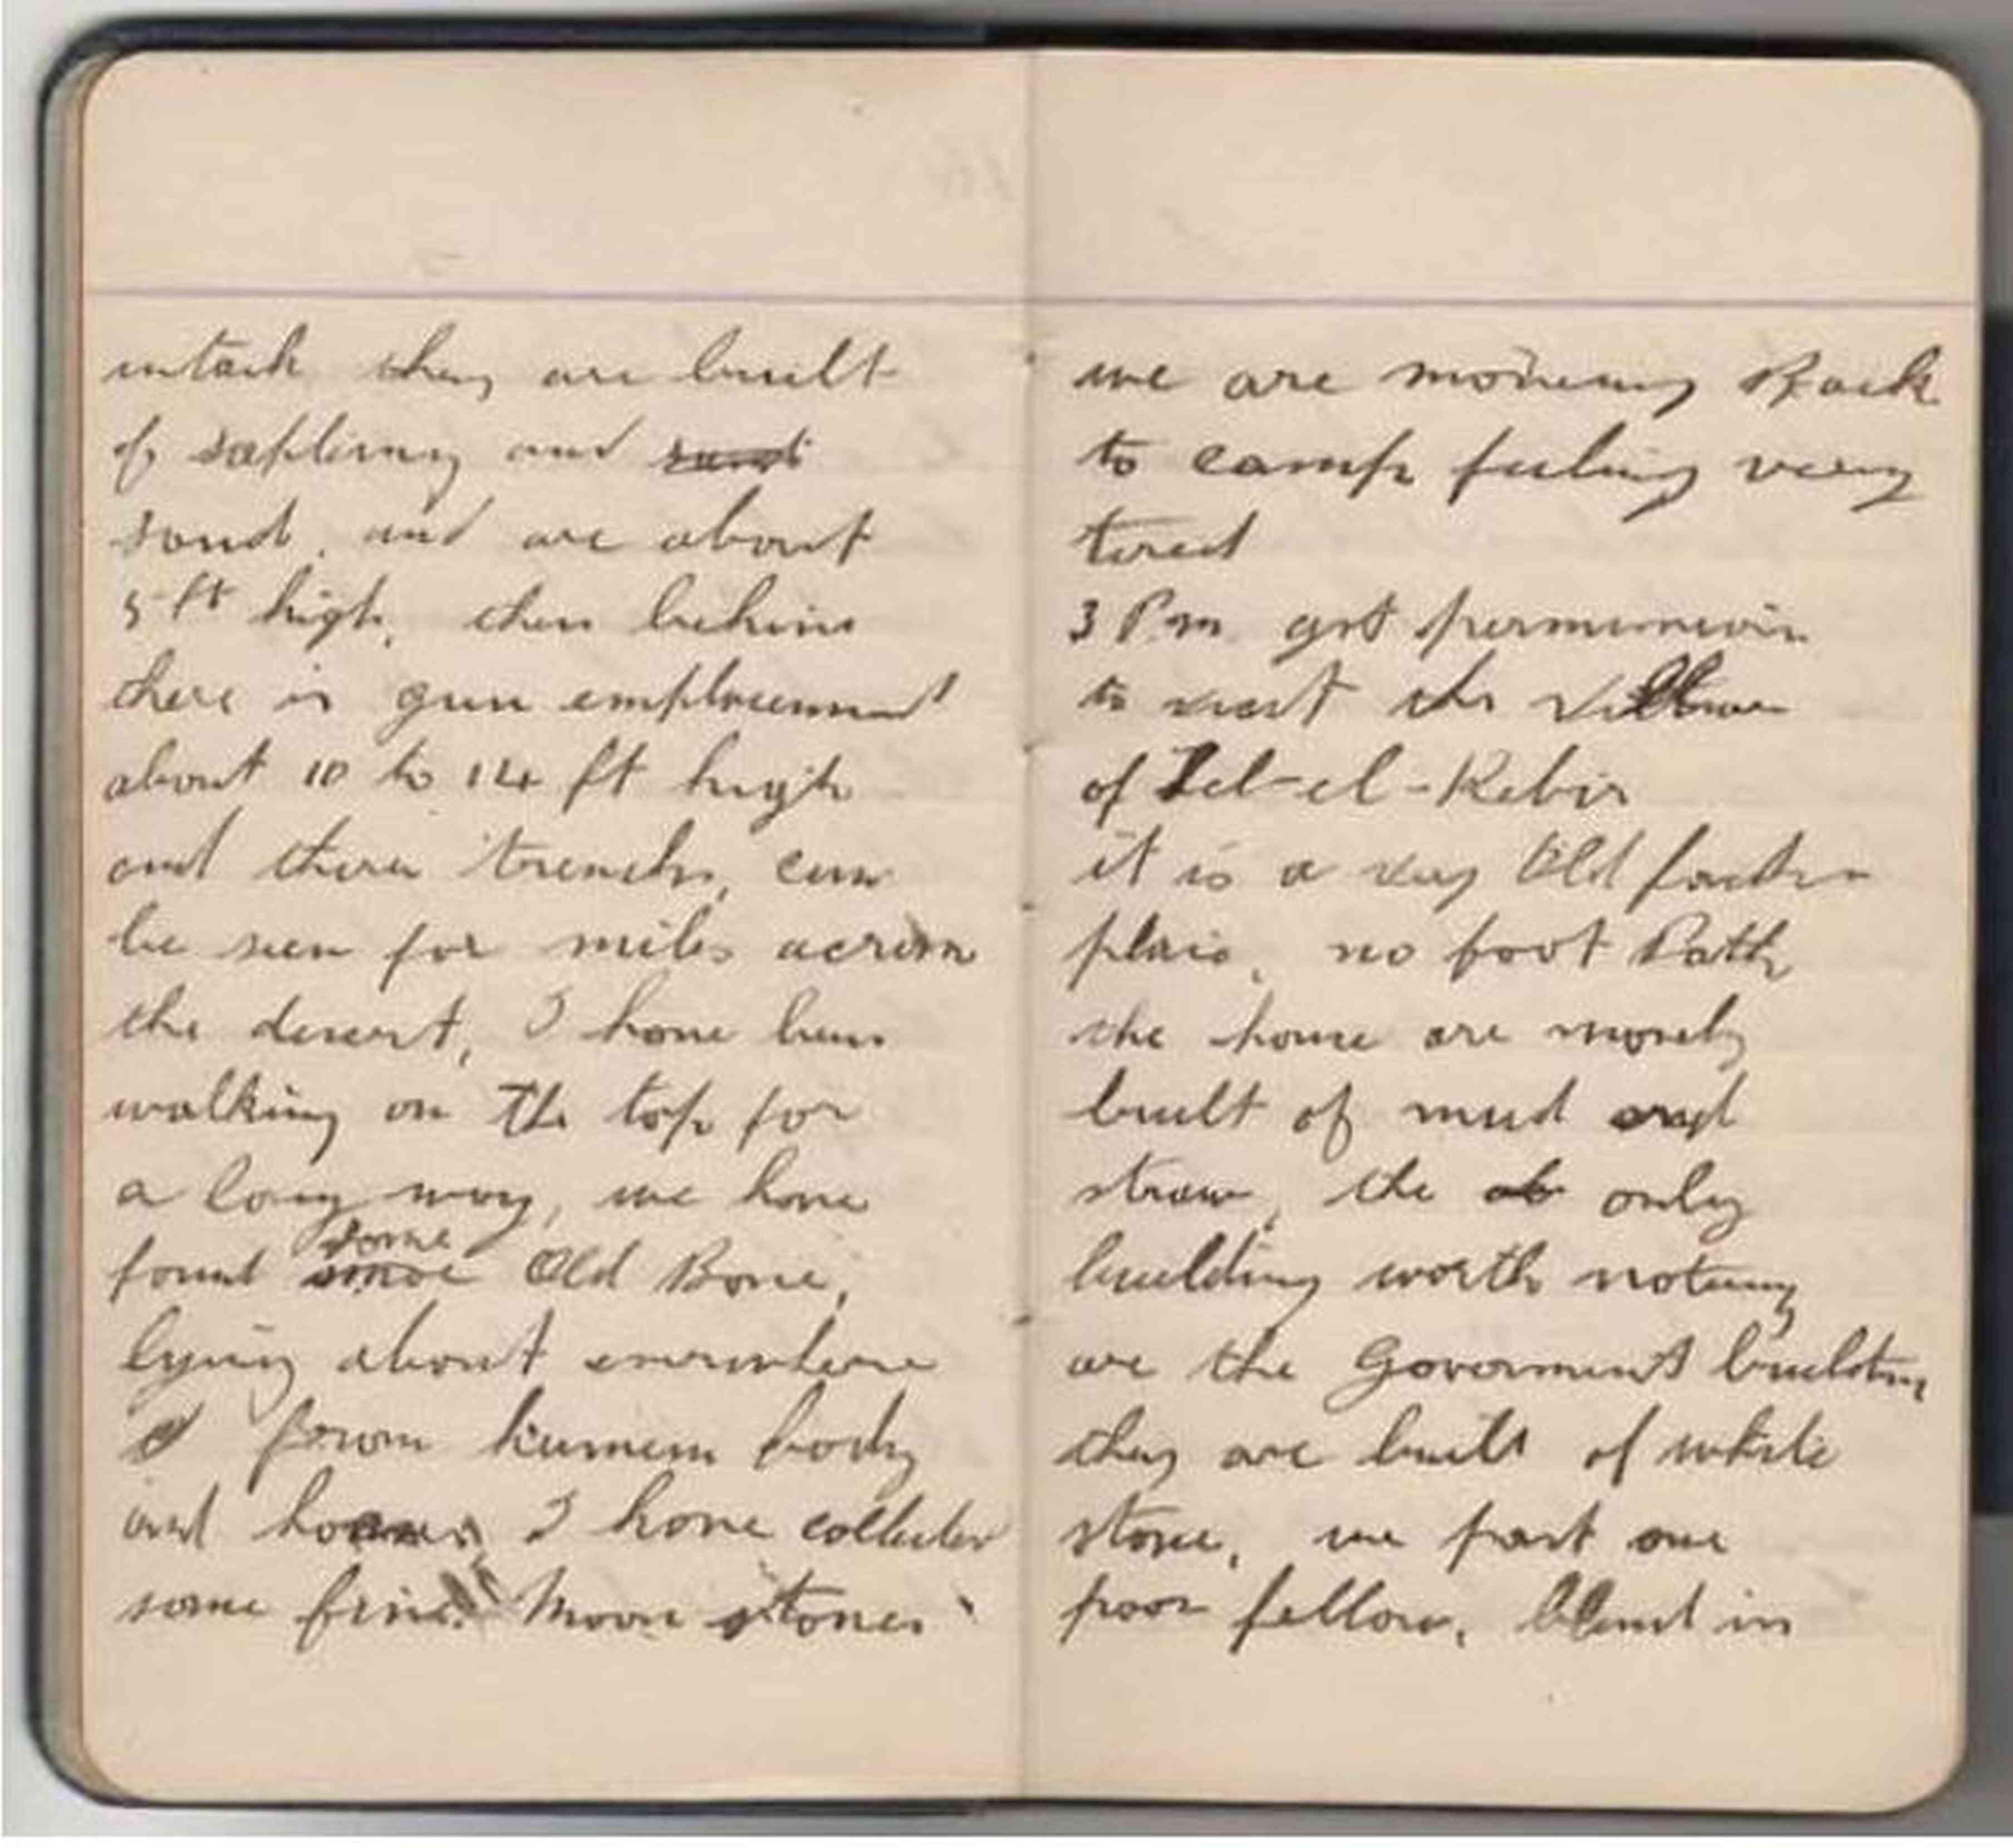 intack they are built
of sapling and sand
sand, and are about
5 ft high, then behind
there is gun emplacement
about 10 to 14 ft high
and these trenches, can
be seen for miles across
the desert, I have been
walking on the top for
a long way, we have
found some Old Bone,
lying about everwhere
from humem body
and horses, I have collected
some fine "Moon stones"
we are moveing Back
to camp feeling very
tired
3 Pm got permission
to visit the village
of Tel-el-Kebir
it is a very Old fashion
place, no foot Path
the house are mostly
built of mud and
straw, the only
building worth noteing
are the Goverment building
they are built of white
stone, we past one
poor fellow, blind in